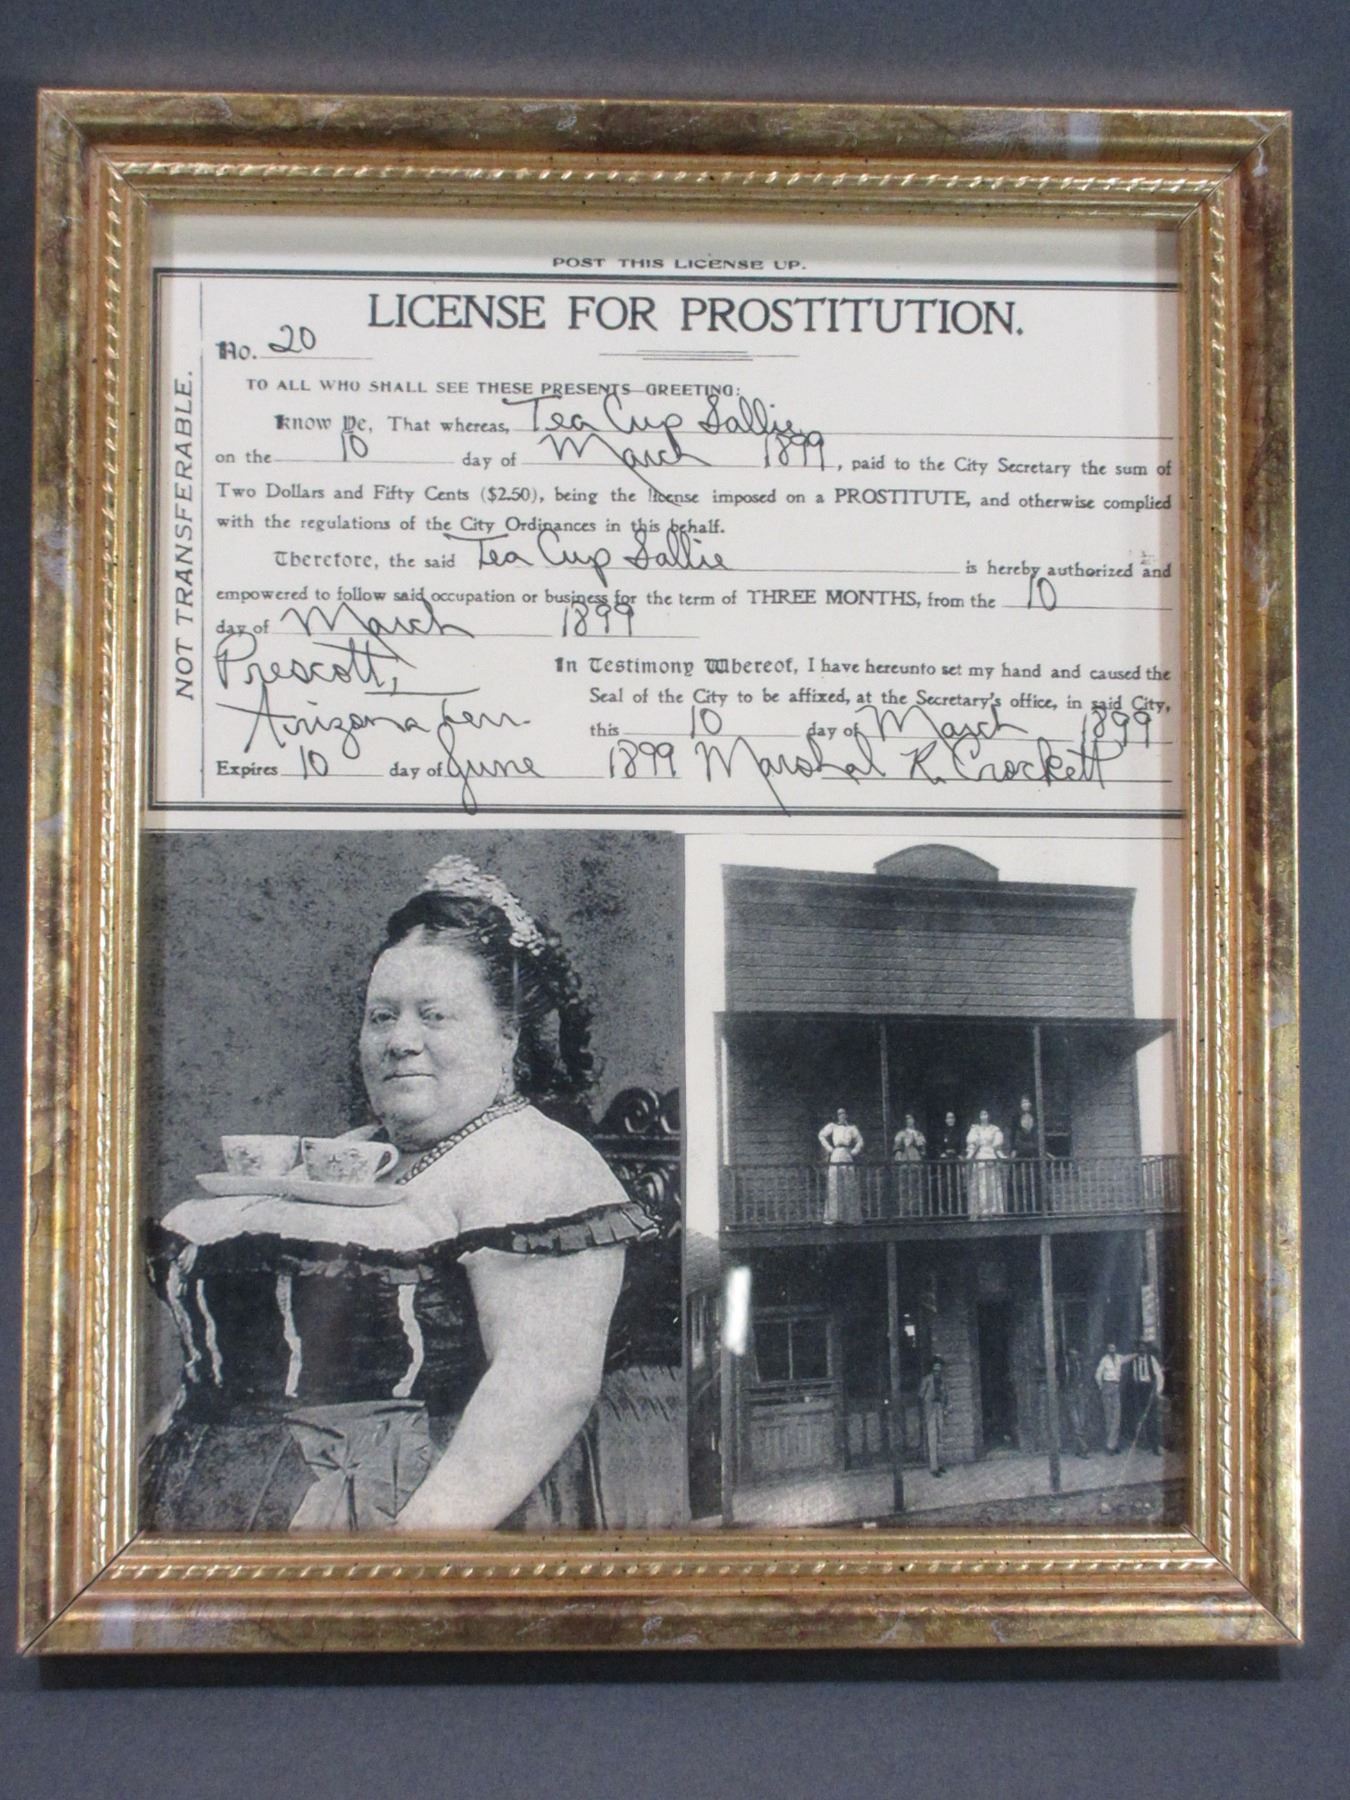 POST THIS LICENSE UP.
LICENSE FOR PROSTITUTION.
No. 20
TO ALL WHO SHALL SEE THESE PRESENTS—GREETING:
Know Ye, That whereas, Tea Cup Sallie
on the 10 day of March 1899, paid to the City Secretary the sum of
Two Dollars and Fifty Cents ($2.50), being the license imposed on a PROSTITUTE, and otherwise complied
with the regulations of the City Ordinances in this behalf.
Therefore, the said Tea Cup Sallie is hereby authorized and
empowered to follow said occupation or business for the term of THREE MONTHS, from the 10
day of March 1899
Prescott,
Arizona Terr.
In Testimony Whereof, I have hereunto set my hand and caused the
Seal of the City to be affixed, at the Secretary's office, in said City,
this 10 day of March 1899
Expires 10 day of June 1899 Marshal K. Crockett
NOT TRANSFERABLE.